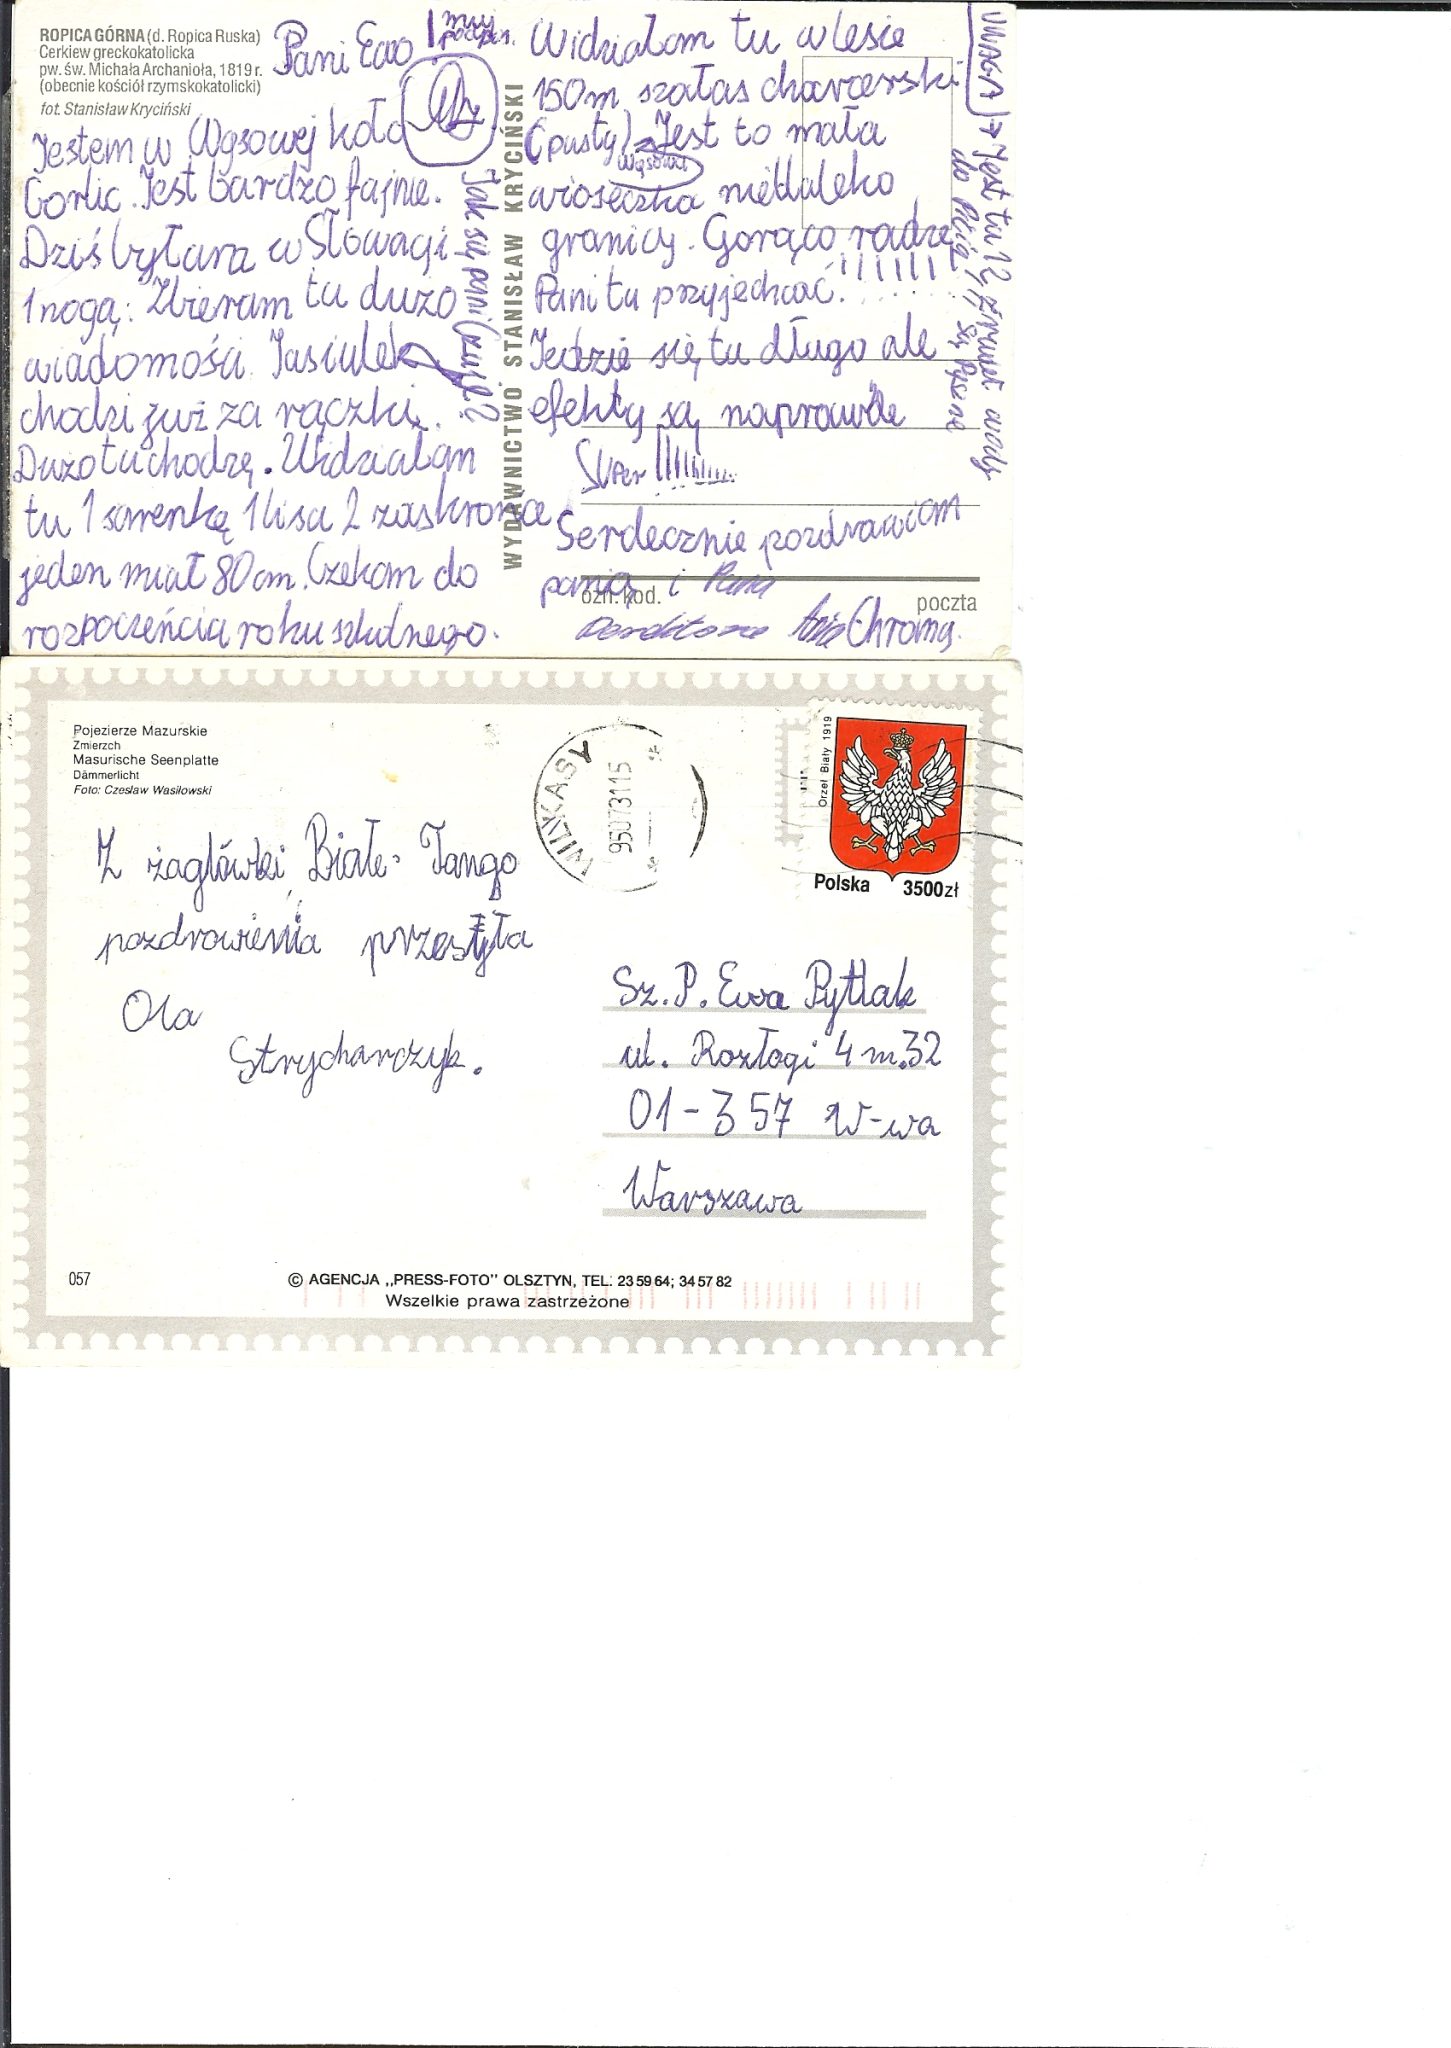 ROPICA GÓRNA (d. Ropica Ruska)
Cerkiew greckokatolicka
pw. św. Michała Archanioła, 1819 r.
(obecnie kościół rzymskokatolicki)
fot. Stanisław Kryciński
Pani Ewo
muj
Jestem w Wąsowej koło
Gorlic. Jest bardzo fajnie.
Dziś byłam w Słowacji
1 nogą: Zbieram tu dużo
wiadomości. Jasiulek
chodzi już za rączki.
Dużo tu chodzę. Widziałam
tu 1 sarenkę 1 lisa 2 zaskrońce
jeden miał 80 cm. Czekam do
rozpoczęńcia roku szkolnego.
Jak się pani czuje?
WYDAWNICTWO STANISŁAW KRYCIŃSKI
Widziałam tu w lesie
150 m szałas charcerski
(pusty) Jest to mała
Wąsowa
wioseczka niedaleko
granicy. Gorąco radzę
Pani tu przyjechać. !!!!!!!
Jedzie się tu długo ale
efekty są naprawde
Super !!!!!!!!!!
Serdecznie pozdrawiam
panią i Pana
Ania Chroma.
ozn. kod.
poczta
UWAGA → Jest tu 12 źraweł wody
do Picia, Są Pyszne
Pojezierze Mazurskie
Zmierzch
Masurische Seenplatte
Dämmerlicht
Foto: Czesław Wasiłowski
WILKASY
95073115
Orzeł Biały 1919
Polska 3500 zł
Z żaglówki Białe-Tango
pozdrowienia przesyła
Ola
Strycharczyk.
Sz. P. Ewa Pytlak
ul. Rozłogi 4 m.32
01-357 W-wa
Warszawa
057
© AGENCJA ,,PRESS-FOTO'' OLSZTYN, TEL: 23 59 64; 34 57 82
Wszelkie prawa zastrzeżone